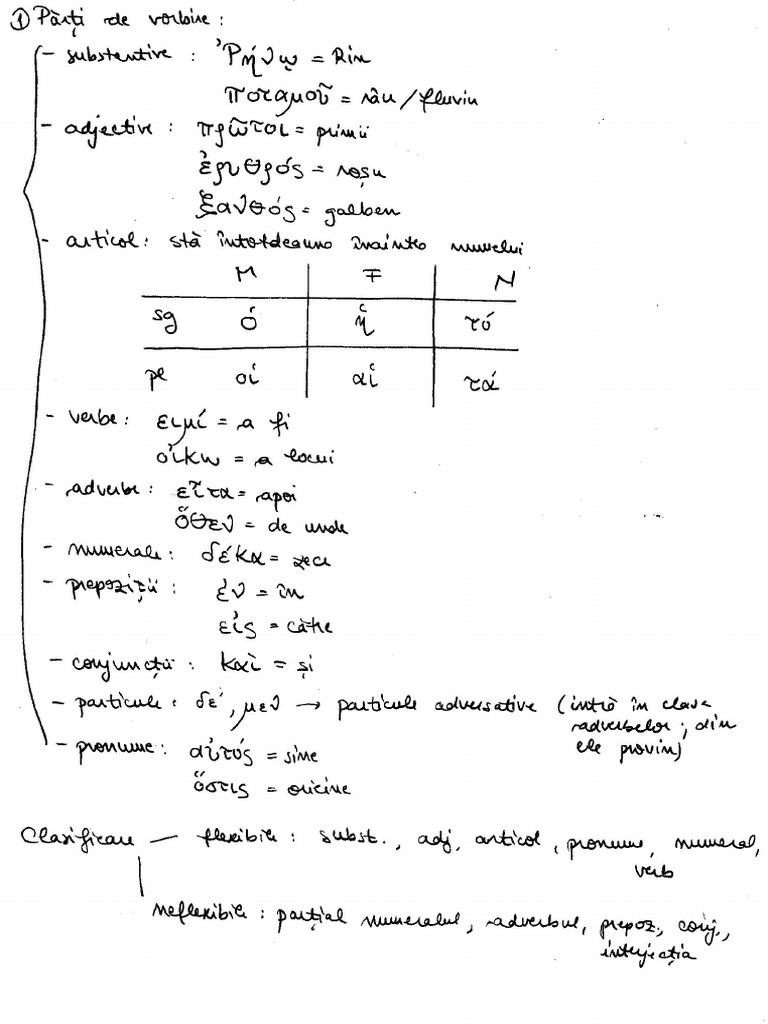 ① Părți de vorbire :
- substantive : Ῥήνῳ = Rin
ποταμοῦ = râu / fluviu
- adjective : πρῶτοι = primii
ἐρυθρός = roșu
ξανθός = galben
- articol : stă întotdeauna înaintea numelui
M F N
sg ὁ ἡ τό
pl οἱ αἱ τά
- verbe : εἰμί = a fi
οἰκω = a locui
- adverbe : εἶτα = apoi
ὅθεν = de unde
- numerale : δέκα = zece
- prepoziții : ἐν = în
εἰς = către
- conjuncții : καὶ = și
- particule : δέ, μεν → particule adversative (intră în clasa
adverbelor ; din
ele provin)
- pronume : αὐτός = sine
ὅστις = oricine
Clasificare — flexibile : subst., adj, articol, pronume, numeral,
verb
neflexibile : parțial numeralul, adverbul, prepoz., conj.,
interjecția